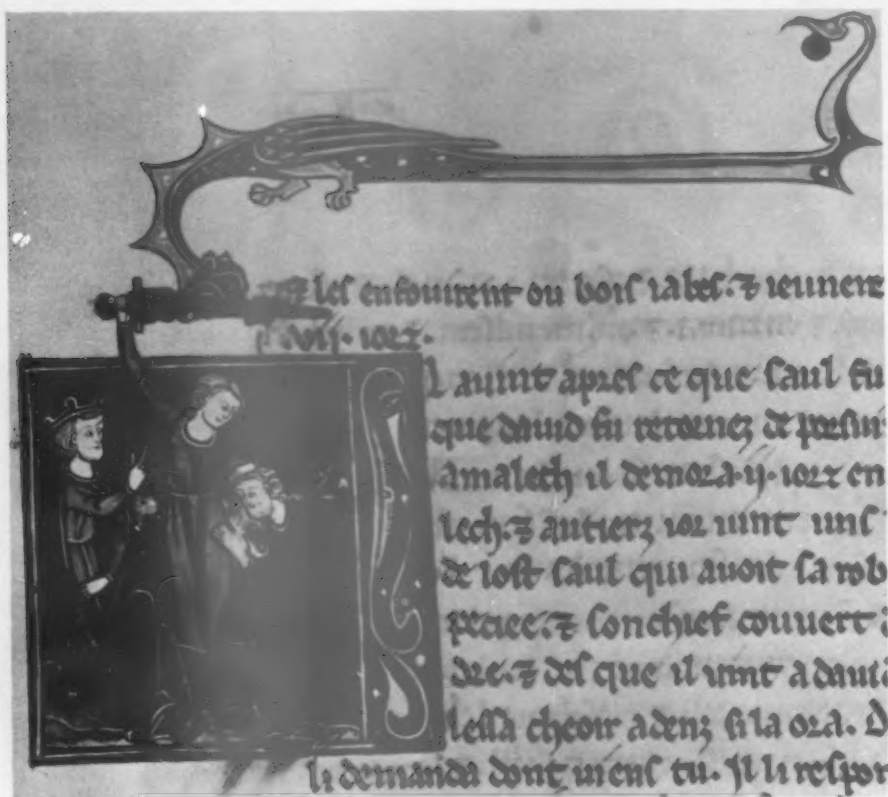 & les enfouirent ou bois iabes. & ieunere
.vij. iorz.
l auint apres ce que saul fu
que dauid fu retornez de porsui
amalech il demora .ij. iorz en
lech. & autierz ior uint uns
de lost saul qui auoit sa rob
peciee. & son chief couuert
dre. & des que il uint a daui
lessa cheoir adenz si la ora. D
li demanda dont uiens tu. Il li respon